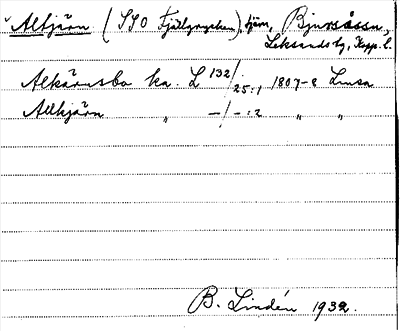 Alltjärn (SSO Fjällgrycken), tjärn, Bjursåssn,
Leksands tg, Kopp. l.
Alkärnsbo ka. L 132/25:1 1807-8 Linsa
Allkjärn " -/-:2 " "
B. Lindén 1932.